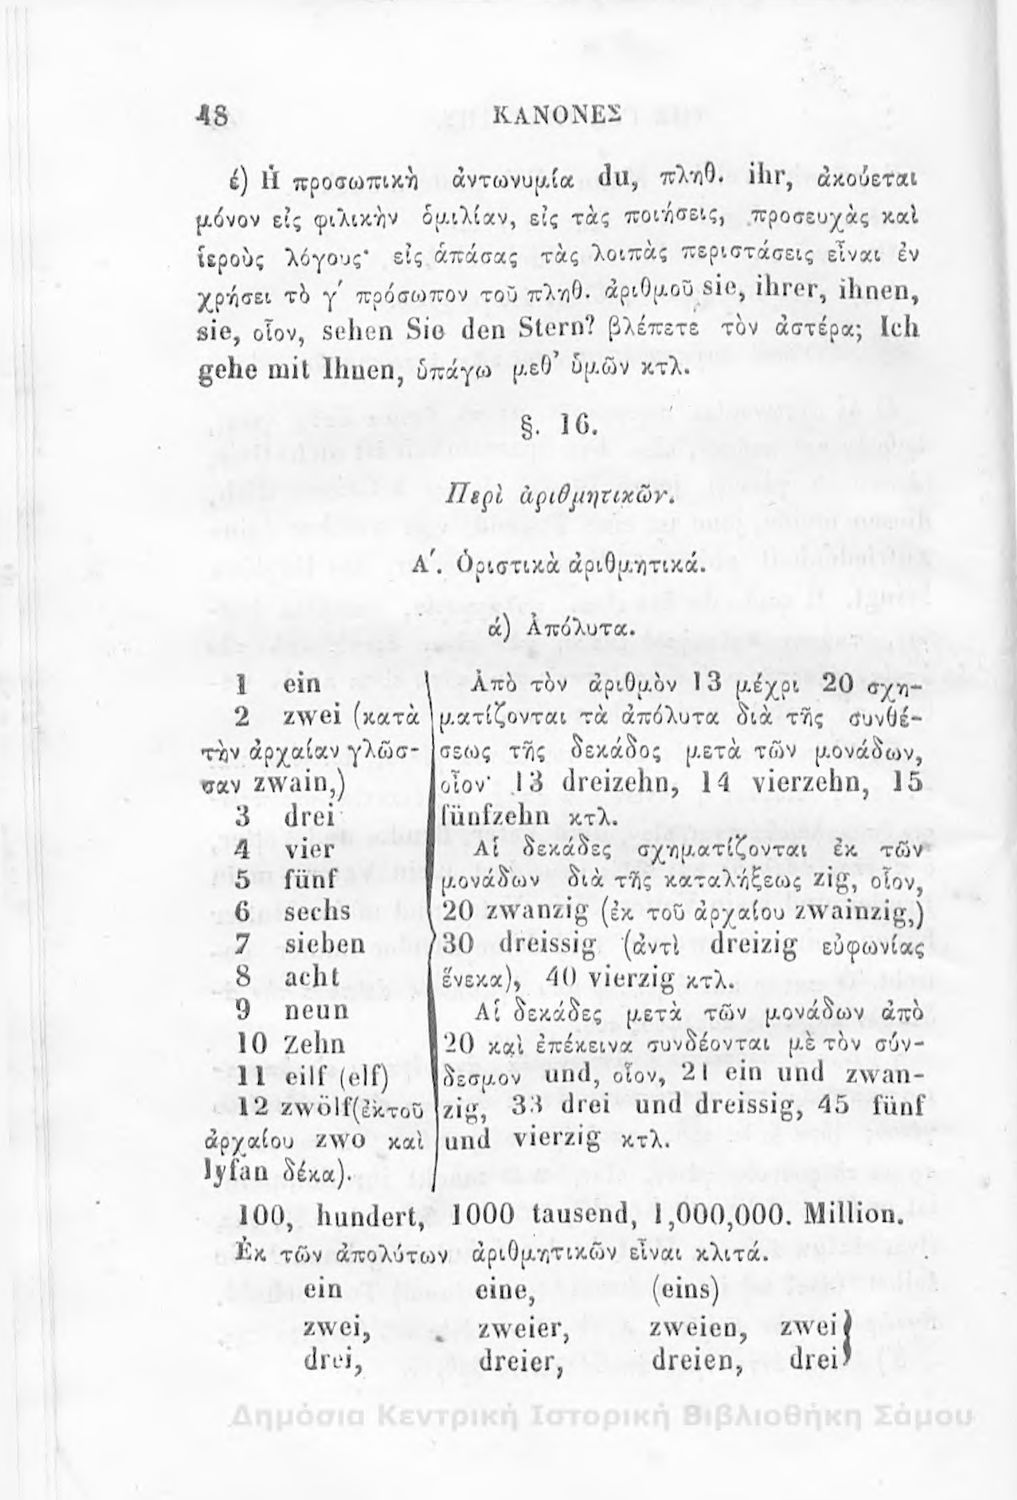 48 ΚΑΝΟΝΕΣ
έ) Ἡ προσωπικὴ ἀντωνυμία du, πληθ. ihr, ἀκούεται
μόνον εἰς φιλικὴν ὁμιλίαν, εἰς τὰς ποιήσεις, προσευχὰς καὶ
ἱεροὺς λόγους· εἰς ἁπάσας τὰς λοιπὰς περιστάσεις εἶναι ἐν
χρήσει τὸ γ΄ πρόσωπον τοῦ πληθ. ἀριθμοῦ sie, ihrer, ihnen,
sie, οἷον, sehen Sie den Stern? βλέπετε τὸν ἀστέρα; Ich
gehe mit Ihnen, ὑπάγω μεθ’ ὑμῶν κτλ.
§. 16.
Περὶ ἀριθμητικῶν.
Α΄. Ὁριστικὰ ἀριθμητικά.
ά) Ἀπόλυτα.
1 ein
2 zwei (κατὰ
τὴν ἀρχαίαν γλῶσ-
σαν zwain,)
3 drei
4 vier
5 fünf
6 sechs
7 sieben
8 acht
9 neun
10 Zehn
11 eilf (elf)
12 zwölf(ἐκτοῦ
ἀρχαίου zwo καὶ
lyfan δέκα).
Ἀπὸ τὸν ἀριθμὸν 13 μέχρι 20 σχη-
ματίζονται τὰ ἀπόλυτα διὰ τῆς συνθέ-
σεως τῆς δεκάδος μετὰ τῶν μονάδων,
οἷον· 13 dreizehn, 14 vierzehn, 15
fünfzehn κτλ.
Αἱ δεκάδες σχηματίζονται ἐκ τῶν
μονάδων διὰ τῆς καταλήξεως zig, οἷον,
20 zwanzig (ἐκ τοῦ ἀρχαίου zwainzig,)
30 dreissig (ἀντὶ dreizig εὐφωνίας
ἕνεκα), 40 vierzig κτλ.
Αἱ δεκάδες μετὰ τῶν μονάδων ἀπὸ
20 καὶ ἐπέκεινα συνδέονται μὲ τὸν σύν-
δεσμον und, οἷον, 21 ein und zwan-
zig, 33 drei und dreissig, 45 fünf
und vierzig κτλ.
100, hundert, 1000 tausend, 1,000,000. Million.
Ἐκ τῶν ἀπολύτων ἀριθμητικῶν εἶναι κλιτά.
ein eine, (eins)
zwei, zweier, zweien, zwei
drei, dreier, dreien, drei
Δημόσια Κεντρική Ιστορική Βιβλιοθήκη Σάμου